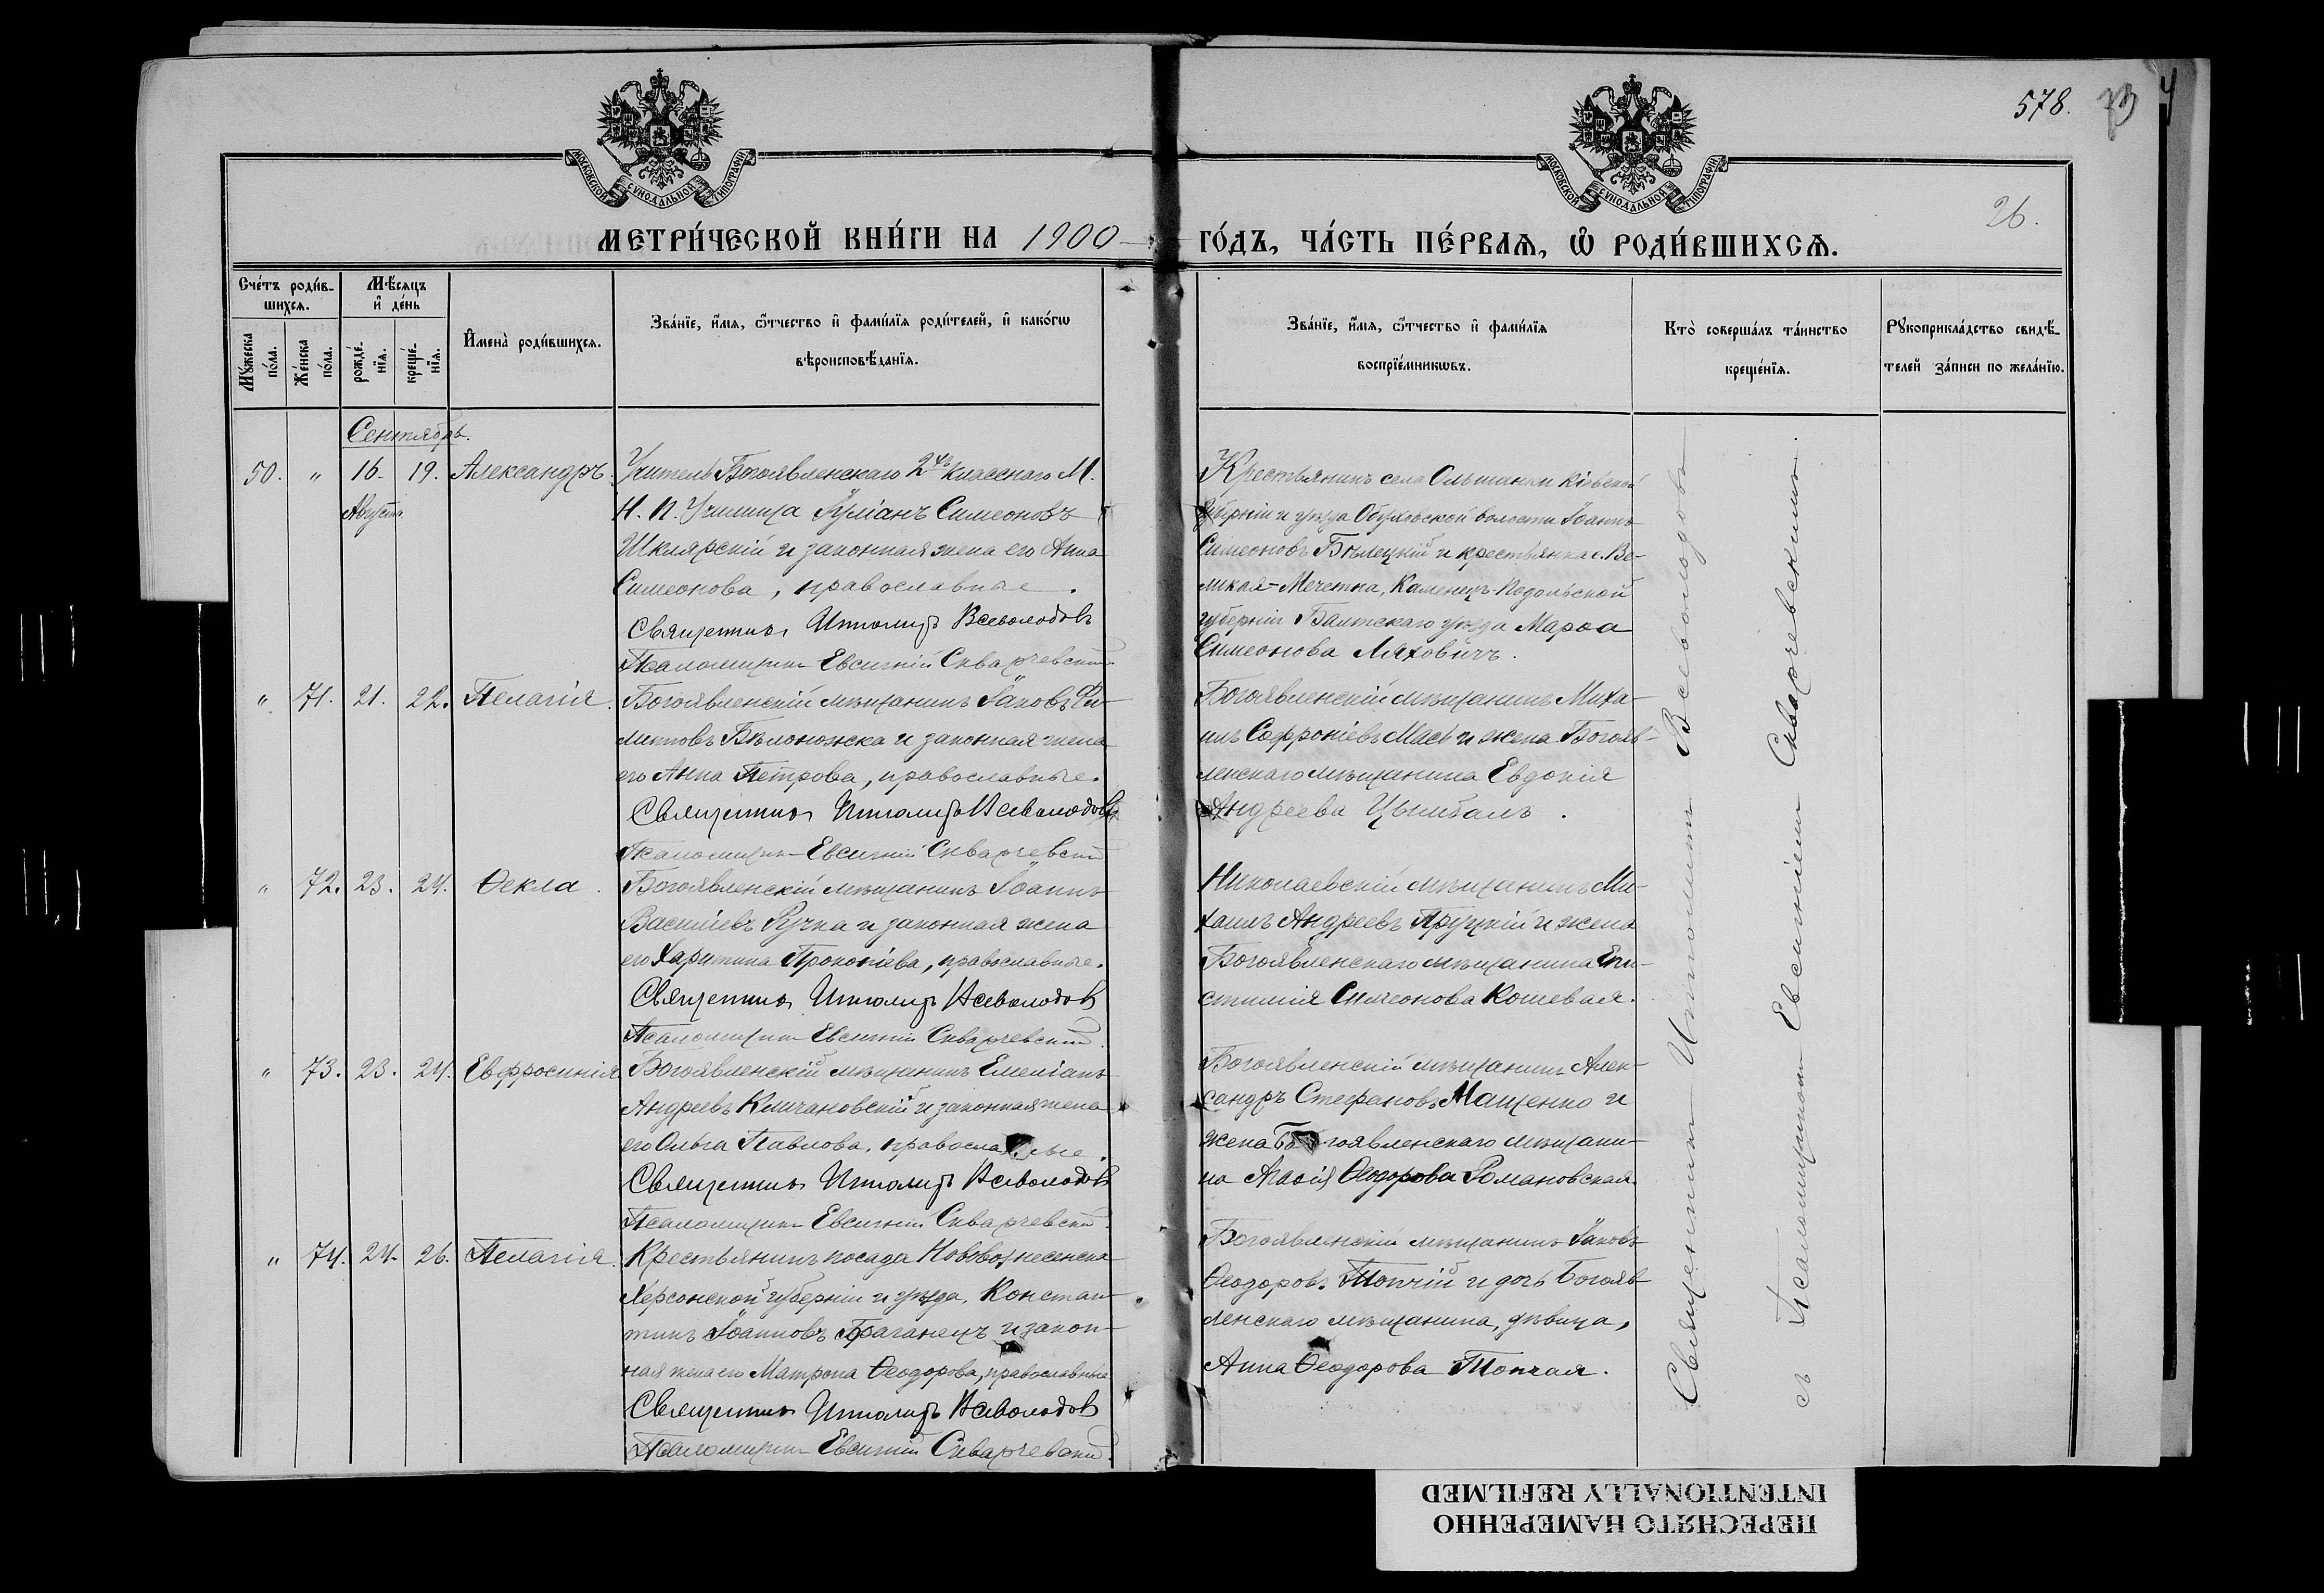 578.
26.
МОСКОВСКОЙ СѴНОДАЛЬНОЙ ТИПОГРАФІИ
МОСКОВСКОЙ СѴНОДАЛЬНОЙ ТИПОГРАФІИ
МЕТРИ́ЧЕСКОЙ КНИ́ГИ НА 1900 ГО́ДЪ, ЧА́СТЬ ПЕ́РВАѦ, Ѡ҆ РОДИ́ВШИХСѦ.
Сче́тъ роди́в-
шихсѧ.
Мѹ́жеска по́ла.
Же́нска по́ла.
Мѣ́сяцъ
и҆ де́нь
рожде́-
нїѧ.
креще́-
нїѧ.
И҆мена̀ роди́вшихсѧ.
Зва́нїе, и҆́мѧ, ѻ҆́тчество и҆ фами́лїѧ роди́телей, и҆ како́гѡ
вѣроисповѣ́данїѧ.
Зва́нїе, и҆́мѧ, ѻ҆́тчество и҆ фами́лїѧ
воспрїе́мникѡвъ.
Кто̀ соверша́лъ та́инство
креще́нїѧ.
Рѹкоприкла́дство свидѣ́-
телей за́писи по жела́нїю.
Сентябрь.
50. " 16. 19. Александръ.
Августа
Учитель Богоявленскаго 2хъ классного М.
Н. П. Училища Іуліанъ Симеоновъ
Шклярскій и законная жена его Анна
Симеонова, православные.
Священникъ Ипполитъ Всеволодовъ
Псаломщикъ Евсигній Скварчевскій
Крестьянинъ села Ольшанки Кіевской
губерніи и уѣзда Обуховской волости Іоаннъ
Симеоновъ Бѣлецкій и крестьянка с. Ве-
ликая-Мечетна, Каменецъ-Подольской
губерніи Балтскаго уѣзда Марѳа
Симеонова Ляховичъ.
" 71. 21. 22. Пелагія.
Богоявленскій мѣщанинъ Іаковъ Фи-
липповъ Бѣлоножка и законная жена
его Анна Петрова, православные.
Священникъ Ипполитъ Всеволодовъ
Псаломщикъ Евсигній Скварчевскій
Богоявленскій мѣщанинъ Миха-
илъ Софроніевъ Мась и жена Богояв-
ленскаго мѣщанина Евдокія
Андреева Цымбалъ.
" 72. 23. 24. Ѳекла.
Богоявленскій мѣщанинъ Іоаннъ
Василіевъ Ручка и законная жена
его Харитина Прокопіева, православные.
Священникъ Ипполитъ Всеволодовъ
Псаломщикъ Евсигній Скварчевскій.
Николаевскій мѣщанинъ Ми-
хаилъ Андреевъ Пруцкій и жена
Богоявленскаго мѣщанина Епи-
стимія Симеонова Кошевая.
" 73. 23. 24. Евфросинія.
Богоявленскій мѣщанинъ Емеліанъ
Андреевъ Кличановскій и законная жена
его Ольга Павлова, православные.
Священникъ Ипполитъ Всеволодовъ
Псаломщикъ Евсигній Скварчевскій.
Богоявленскій мѣщанинъ Алек-
сандръ Стефановъ Мащенко и
жена Богоявленскаго мѣщани-
на Агаѳія Ѳеодорова Романовская.
" 74. 24. 26. Пелагія.
Крестьянинъ посада Нововознесенска
Херсонской губерніи и уѣзда, Констан-
тинъ Іоанновъ Браганецъ и закон-
ная жена его Матрона Ѳеодорова, православные
Священникъ Ипполитъ Всеволодовъ
Псаломщикъ Евсигній Скварчевскій.
Богоявленскій мѣщанинъ Іаковъ
Ѳеодоровъ Топчій и дочь Богояв-
ленскаго мѣщанина, дѣвица,
Анна Ѳеодорова Топчая.
Священникъ Ипполитъ Всеволодовъ
съ Псаломщикомъ Евсигніемъ Скварчевскимъ.
ПЕРЕСНЯТО НАМЕРЕННО
INTENTIONALLY REFILMED